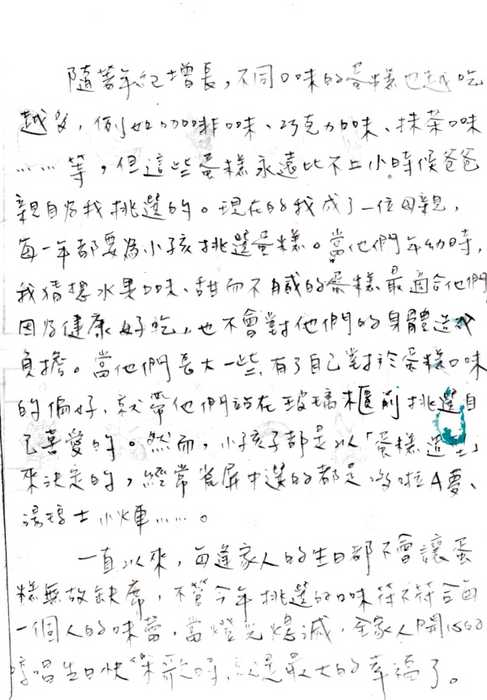 隨著年紀增長，不同口味的蛋糕也越吃
越多，例如咖啡口味、巧克力口味、抹茶口味
……等，但這些蛋糕永遠比不上小時候爸爸
親自為我挑選的。現在的我成了一位母親，
每一年都要為小孩挑選蛋糕。當他們年幼時，
我猜想水果口味、甜而不膩的蛋糕最適合他們
因為健康好吃，也不會對他們的身體造成
負擔。當他們長大一些，有了自己對於蛋糕口味
的偏好，就帶他們站在玻璃櫃前挑選自
己喜愛的。然而，小孩子都是以「蛋糕造型」
來決定的，經常雀屏中選的都是哆啦A夢、
湯瑪士小火車……。
一直以來，每逢家人的生日都不會讓蛋
糕無故缺席，不管今年挑選的口味符不符合每
一個人的味蕾，當燈光熄滅，全家人開
唱生日快樂歌時，就是最大的幸福了。